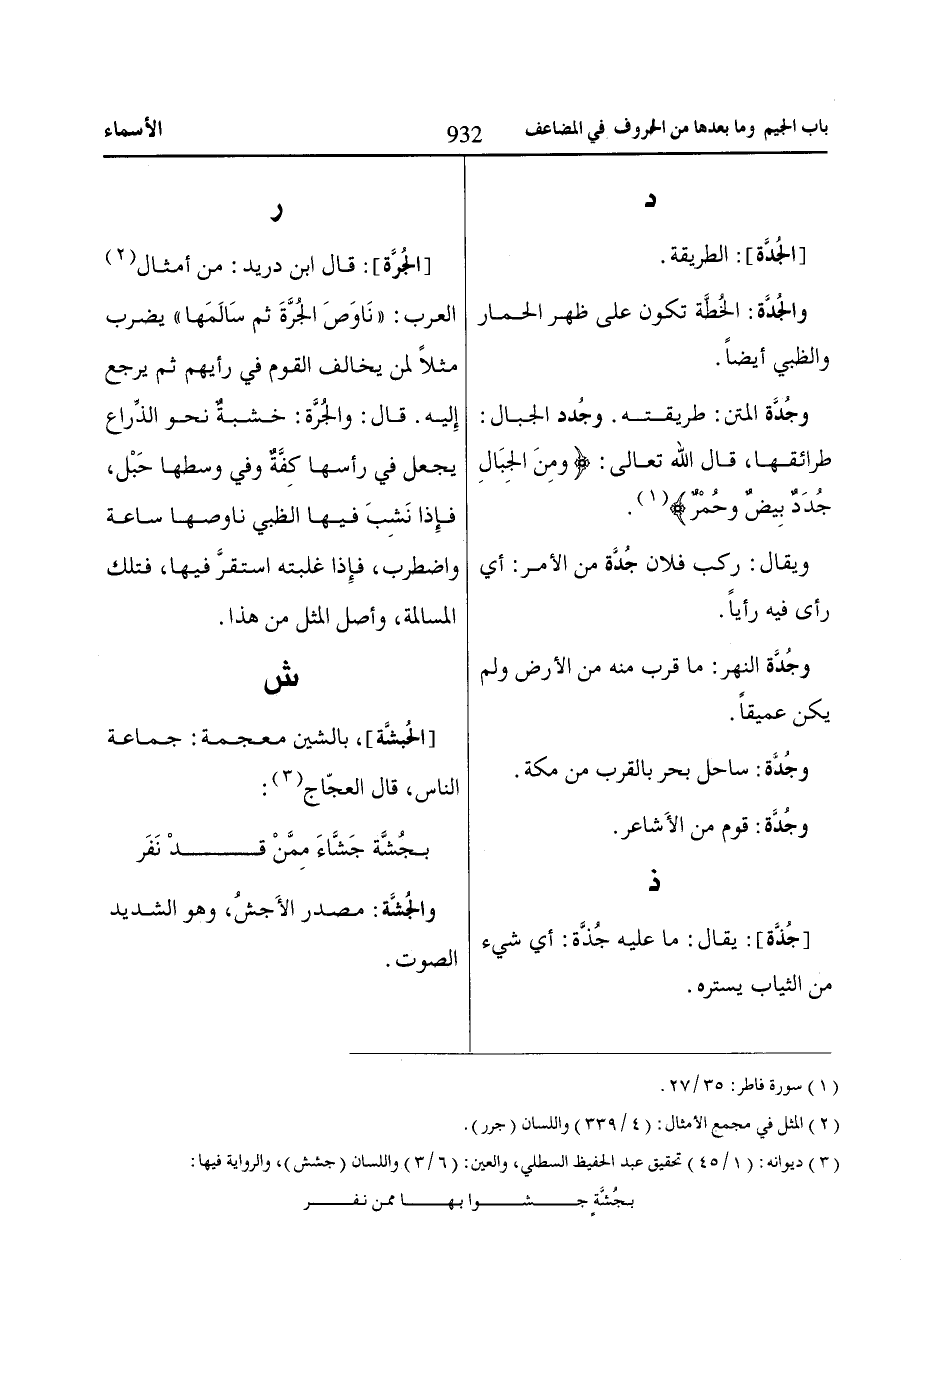 باب الجيم وما بعدها من الحروف في المضاعف 932 الأسماء
د
[الجُدَّة]: الطريقة.
والجُدَّة: الخُطَّة تكون على ظهر الحمار
والظبي أيضاً.
وجُدَّة المتن: طريقته. وجُدد الجبال:
طرائقها، قال الله تعالى: ﴿ومِنَ الجِبَالِ
جُدَدٌ بيضٌ وحُمْرٌ﴾(١).
ويقال: ركب فلان جُدَّة من الأمر: أي
رأى فيه رأياً.
وجُدَّة النهر: ما قرب منه من الأرض ولم
يكن عميقاً.
وجُدَّة: ساحل بحر بالقرب من مكة.
وجُدَّة: قوم من الأشاعر.
ذ
[جُذَّة]: يقال: ما عليه جُذَّة: أي شيء
من الثياب يستره.
ر
[الجُرَّة]: قال ابن دريد: من أمثال(٢)
العرب: «نَاوَصَ الجُرَّةَ ثم سَالَمَها» يضرب
مثلاً لمن يخالف القوم في رأيهم ثم يرجع
إليه. قال: والجُرَّة: خشبةٌ نحو الذِّراع
يجعل في رأسها كفَّةٌ وفي وسطها حَبْل،
فإذا نَشِبَ فيها الظبي ناوصها ساعة
واضطرب، فإذا غلبته استقرَّ فيها، فتلك
المسالمة، وأصل المثل من هذا.
ش
[الجُشَّة]، بالشين معجمة: جماعة
الناس، قال العجّاج(٣):
بجُشَّة جَشَّاءَ ممَّنْ قدْ نَفَر
والجُشَّة: مصدر الأجشُ، وهو الشديد
الصوت.
(١) سورة فاطر: ٣٥/ ٢٧.
(٢) المثل في مجمع الأمثال: (٤/ ٣٣٩) واللسان (جرر).
(٣) ديوانه: (١/ ٤٥) تحقيق عبد الحفيظ السطلي، والعين: (٦/ ٣) واللسان (جشش)، والرواية فيها:
بجُشَّةٍ جشوا بها ممن نفر